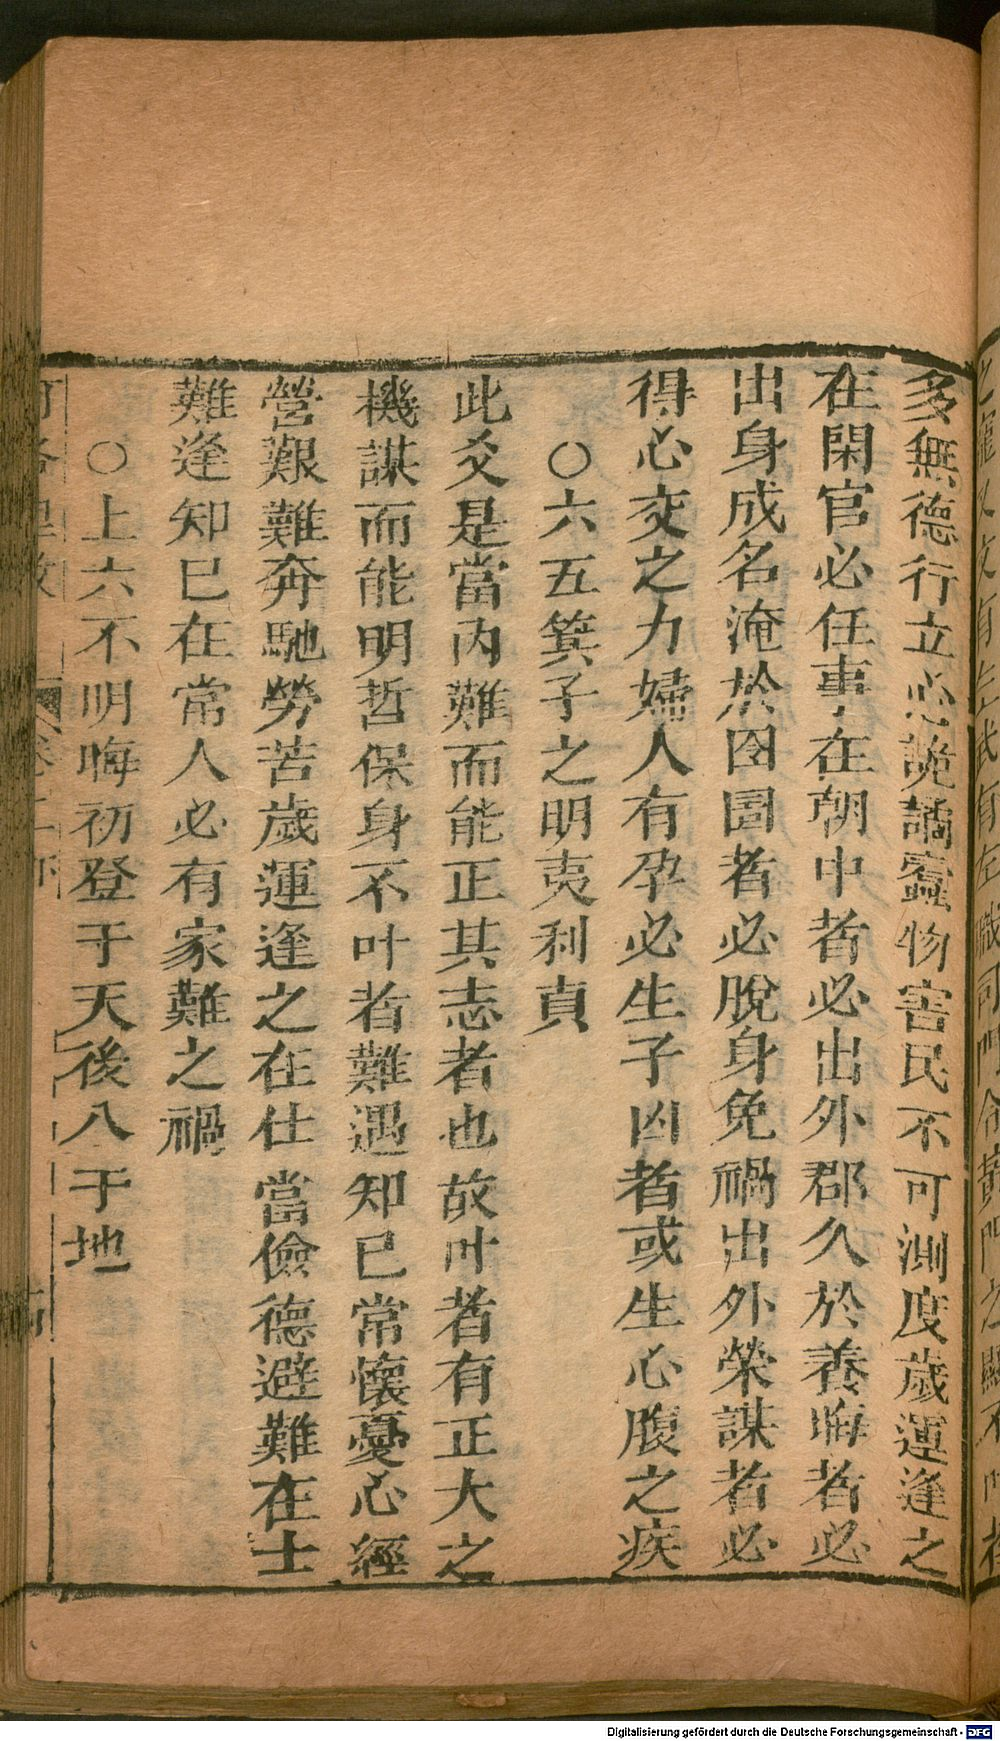 多無德行立心詭譎蠹物害民不可測度歲運逢之
在閑官必任事在朝中者必出外郡久於養晦者必
出身成名淹於囹圄者必脫身免禍出外榮謀者必
得心交之力婦人有孕必生子凶者或生心腹之疾
○六五箕子之明夷利貞
此爻是當內難而能正其志者也故叶者有正大之
機謀而能明哲保身不叶者難遇知已常懷憂心經
營艱難奔馳勞苦歲運逢之在仕當儉德避難在士
難逢知巳在常人必有家難之禍
○上六不明晦初登于天後入于地
Digitalisierung gefördert durch die Deutsche Forschungsgemeinschaft - DFG